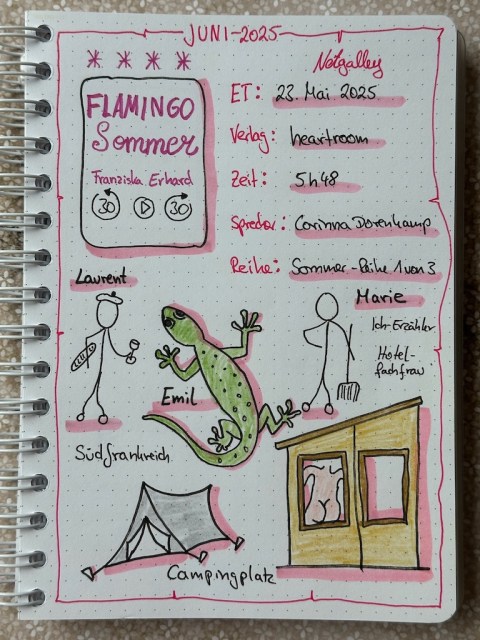 JUNI-2025
Netgalley
FLAMINGO
Sommer
Franziska Erhard
30 30
ET: 23. Mai 2025
Verlag: heartroom
Zeit: 5h48
Sprecher: Corinna Dorenkamp
Reihe: Sommer-Reihe 1 von 3
Laurent
Marie
Ich-Erzähler
Hotel-
fachfrau
Emil
Südfrankreich
Campingplatz